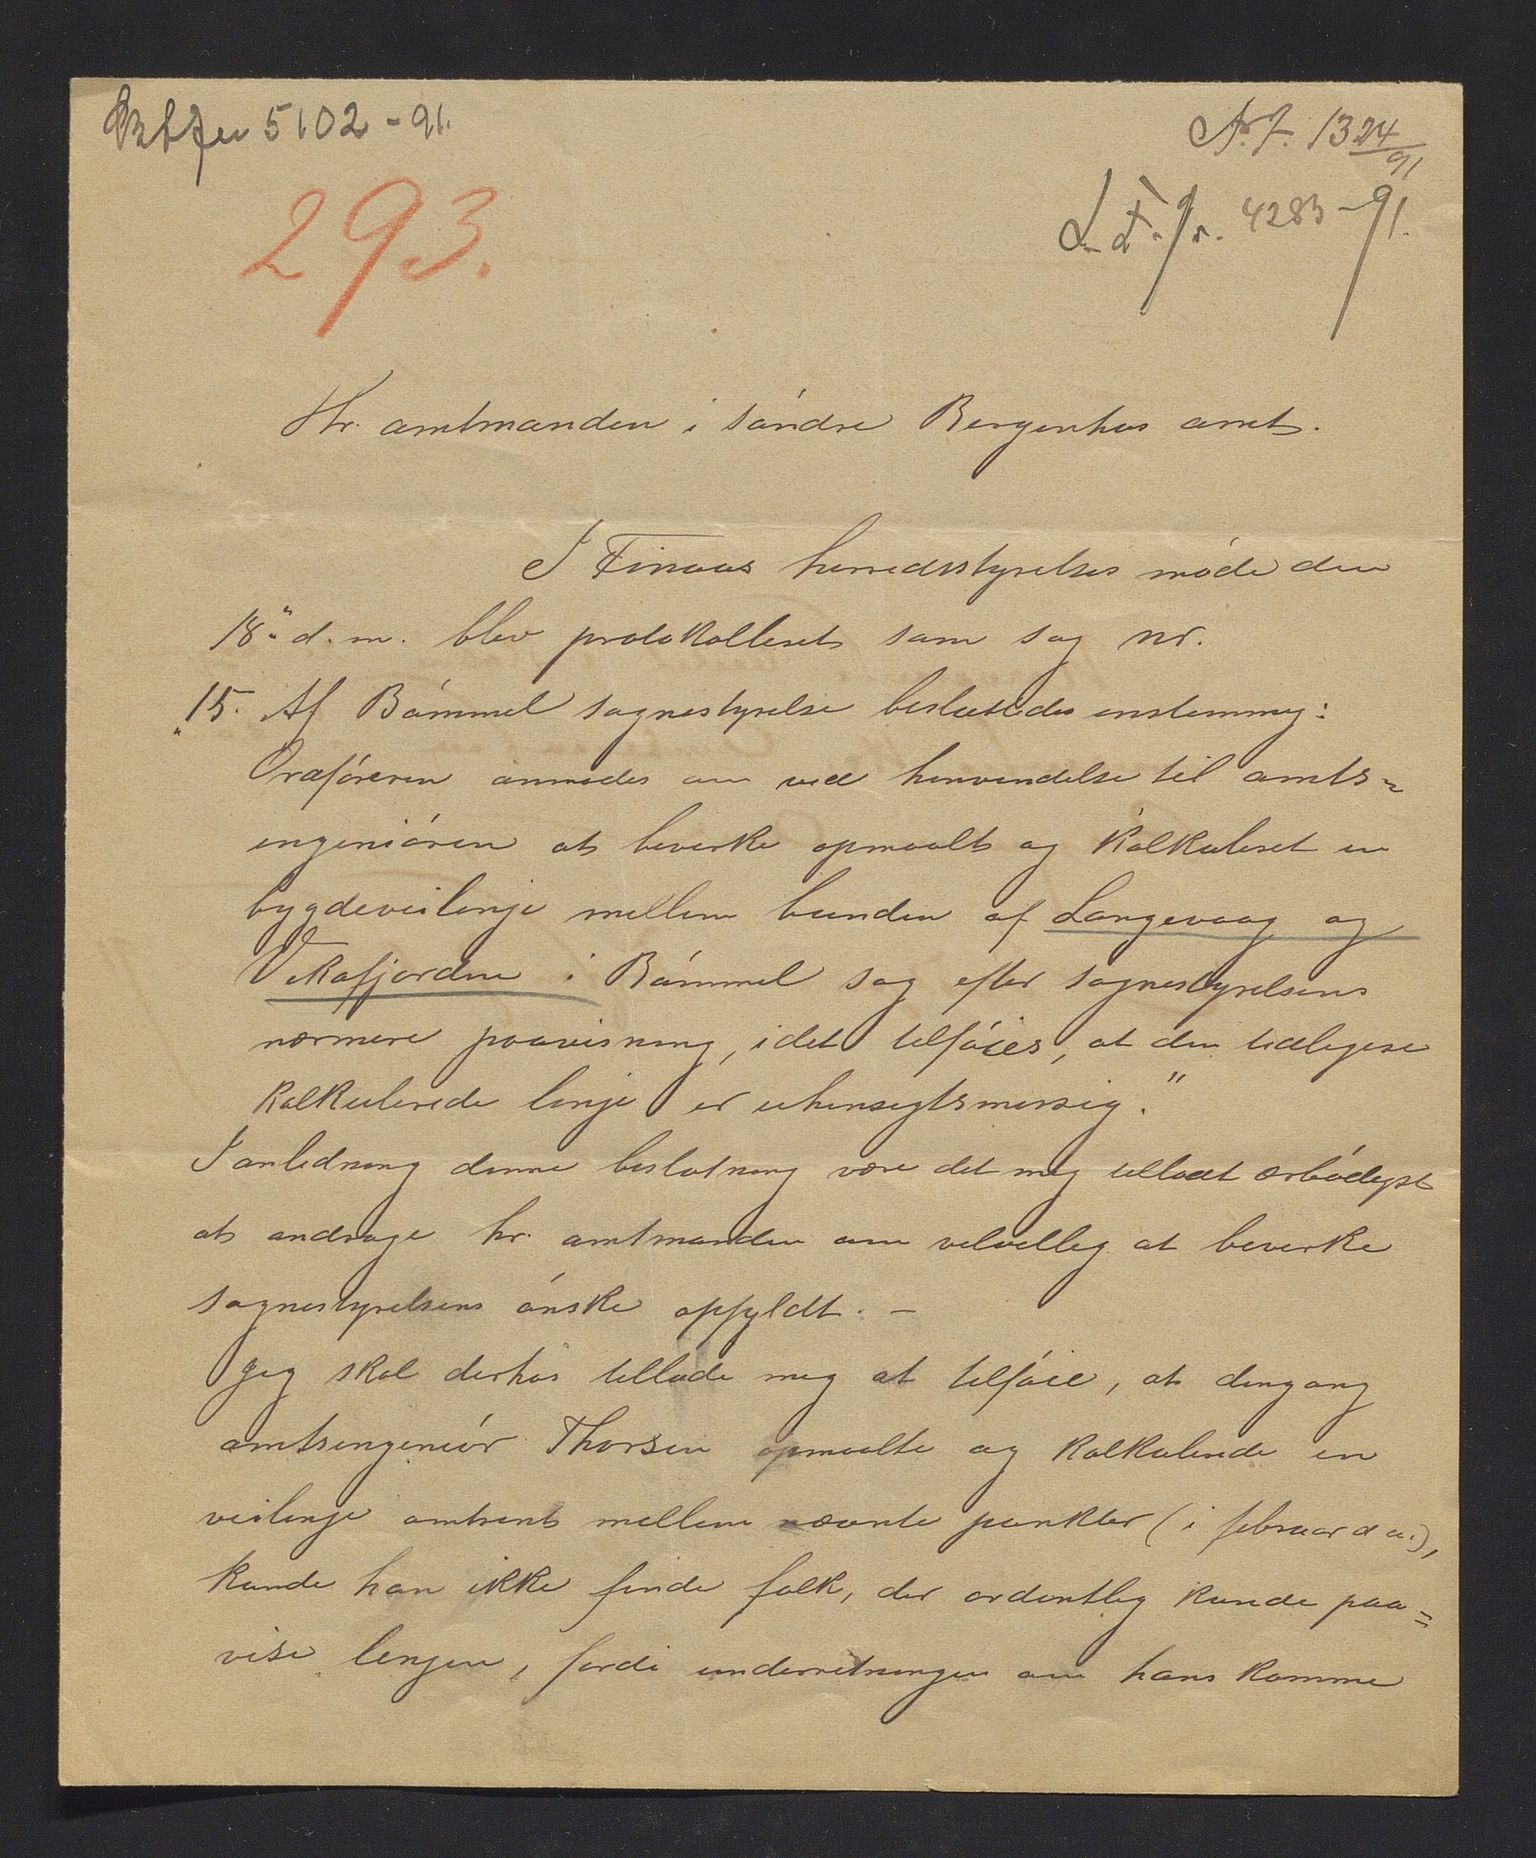 5102 - 91.
A. J. 1324/91
293.
L. F. Jr. 4283-91.
Hr. amtmanden i söndre Bergenhus amt.
I Finaas herredsstyrelses möde den
18de d. m. blev protokolleret som sag nr.
"15. Af Bömmel sognestyrelse besluttedes enstemmig:
Ordföreren anmodes om ved henvendelse til amts-
ingeniören at bevirke opmaalt og kalkuleret en
bygdeveilinje mellem bunden af Langevaag og
Vikafjorden i Bömmel sog efter sognestyrelsens
nærmere paavisning, idet tilföies, at den tidligere
kalkulerede linje er uhensigtsmæssig."
I anledning denne beslutning være det mig tilladt ærbödigst
at andrage hr. amtmanden om velvillig at bevirke
sognestyrelsens önske opfyldt. –
Jeg skal derhos tillade mig at tilföie, at dengang
amtsingeniör Thorsen opmaalte og kalkulerede en
veilinje omtrent mellem nævnte punkter (i februar d. a.),
kunde han ikke finde folk, der ordentlig kunde paa-
vise linjen, fordi underretningen om hans komme